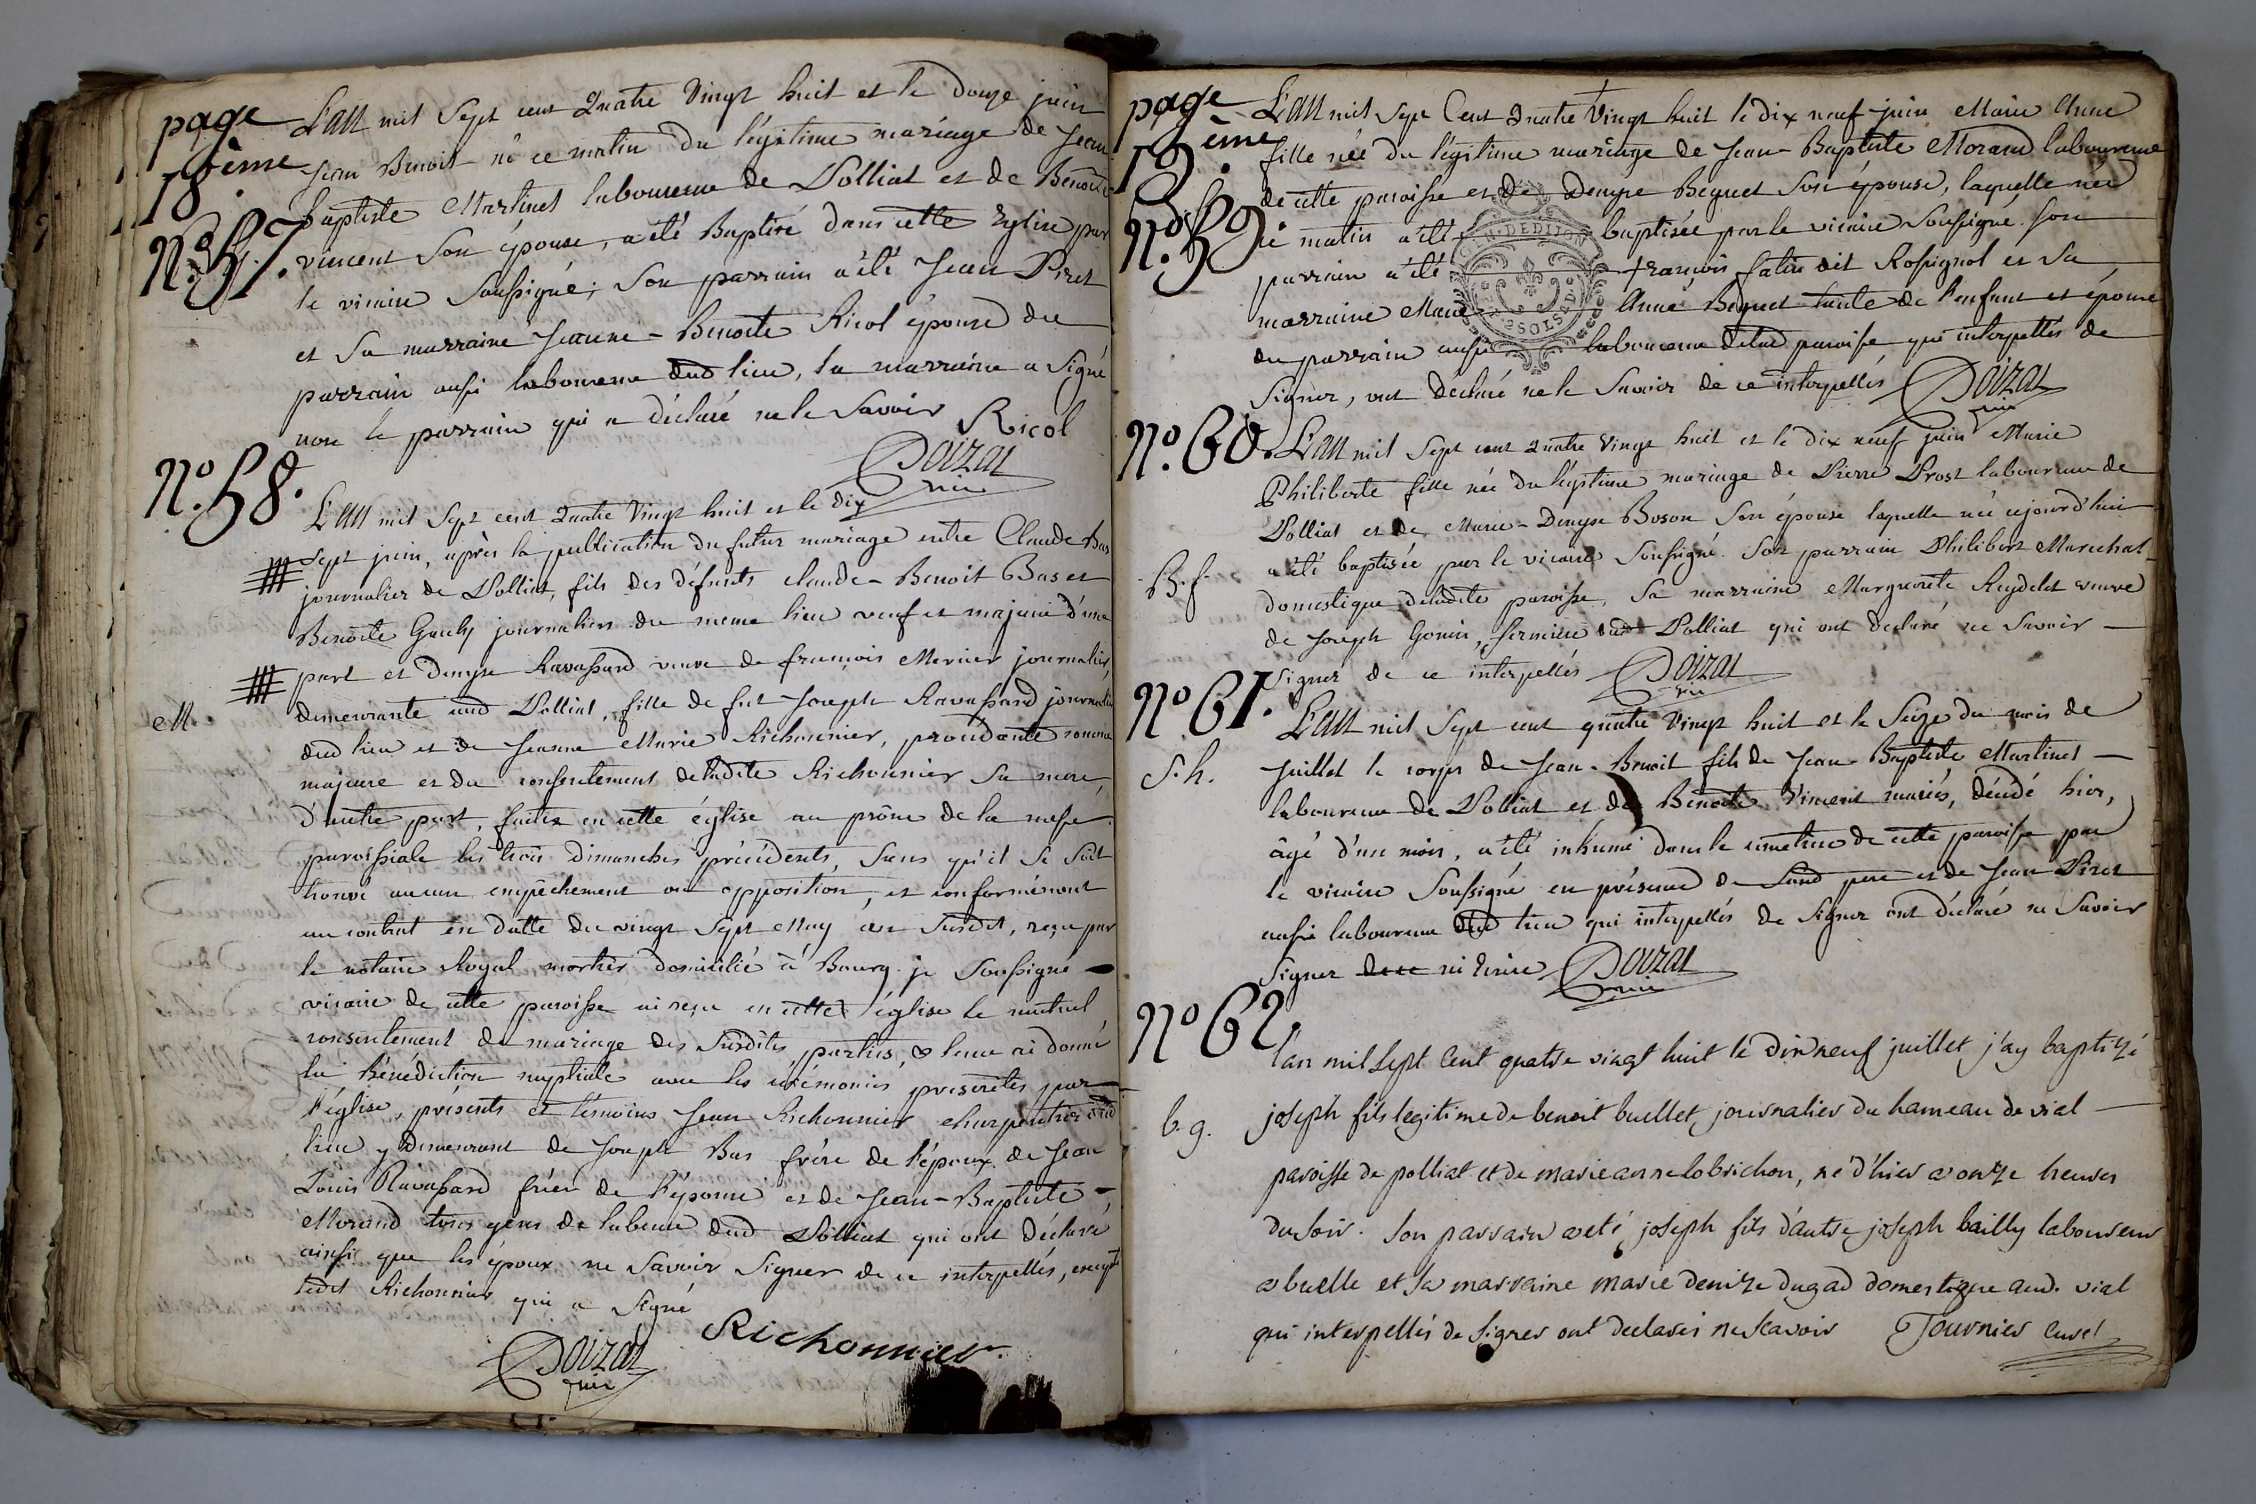 page
18eme
No. 57.
L'an mil sept cent quatre vingt huit et le douze juin
Jean Benoit né ce matin du légitime mariage de Jean
baptiste Martinet laboureur de Polliat et de Benoite
vincent son épouse, a été Baptisé dans cette Eglise par
le vicaire soussigné; son parrain a été Jean Piret
et sa marraine Jeanne-Benoite Ricol épouse du
parrain aussi laboureur dud lieu, la marraine a signé
non le parrain qui a déclaré ne le savoir Ricol
Doizat
vic.
No. 58.
L'an mil sept cent quatre vingt huit et le dix
sept juin, après la publication du futur mariage entre Claude Bas
journalier de Polliat, fils des défunts claude-Benoit Bas et
Benoite Gauly journaliers du meme lieu veuf et majeur d'une
part et Denyse Ravassard veuve de françois Mercier journalier
M
demeurante aud Polliat, fille de fut Joseph Ravassard journalier
dud lieu et de Jeanne Marie Richonnier, procédante comme
majeure et du consentement de ladite Richonnier sa mere,
d'autre part, faites en cette église au prône de la messe
paroissiale les trois dimanches précédents, sans qu'il se soit
trouvé aucun empêchement ou opposition, et conformément
au contrat en datte du vingt sept May an susdit, reçu par
le notaire Royal mortier domicilié à Bourg. je soussigné
vicaire de cette paroisse ai reçu en cette église le mutuel
consentement de mariage des susdites parties, & leur ai donné
la bénédiction nuptiale avec les cérémonies prescrites par
l'église, présents et témoins Jean Richonnier charpentier dud
lieu y demeurant de Joseph Bas frère de l'époux de Jean
Louis Ravassard frère de l'épouse et de Jean-Baptiste
Morand tous gens de labeur dud Polliat qui ont déclaré
ainsi que les époux ne savoir signer de ce interpellés, excepté
ledit Richonnier qui a signé
Richonnier.
Doizat
vic
page
19eme.
No. 59.
L'an mil sept Cent quatre vingt huit le dix neuf juin Marie Anne
fille née du légitime mariage de Jean-Baptiste Morand laboureur
de cette paroisse et de Denyse Beguet son épouse, laquelle née
ce matin a été baptisée par le vicaire soussigné. son
parrain a été françois fatin dit Rossignol et sa
marraine Marie Anne Beguet tante de l'enfant et épouse
du parrain aussi laboureur delad paroisse qui interpellés de
signer, ont déclaré ne le savoir de ce interpellés Doizat
vic
GEN. DE DIJON
No. 60.
L'an mil sept cent quatre vingt huit et le dix neuf juin Marie
Philiberte fille née du légitime mariage de Pierre Prost laboureur de
Polliat et de Marie-Denyse Boson son épouse laquelle née aujourd'hui
B.f.
a été baptisée par le vicaire soussigné. son parrain Philibert Marechal
domestique deladite paroisse, sa marraine Marguerite Reydelet veuve
de Joseph Gonin, fermière dud Polliat qui ont déclaré ne savoir
signer de ce interpellés Doizat
vic
No 61.
L'an mil sept cent quatre vingt huit et le seize du mois de
S.h.
juillet le corps de Jean-Benoit fils de Jean-Baptiste Martinet
laboureur de Polliat et de Benoite Vincent mariés, décédé hier,
âgé d'un mois, a été inhumé dans le cimetiere de cette paroisse par
le vicaire soussigné en présence de sond pere et de Jean Piret
aussi laboureur dud lieu qui interpellés de signer ont déclaré ne savoir
signer ni écrire Doizat
vic
No 62.
l'an mil sept cent quatre vingt huit le dix neuf juillet j'ay baptizé
b.g.
joseph fils legitime de benoit buellet journalier du hameau de vial
paroisse de polliat et de marie anne lobrichon, né d'hier a onze heures
du soir. son parrain a eté joseph fils d'autre joseph bailly laboureur
a buelle et sa marraine marie denize dugad domestique aud. vial
qui interpellés de signer ont declarés ne scavoir Tournier curé